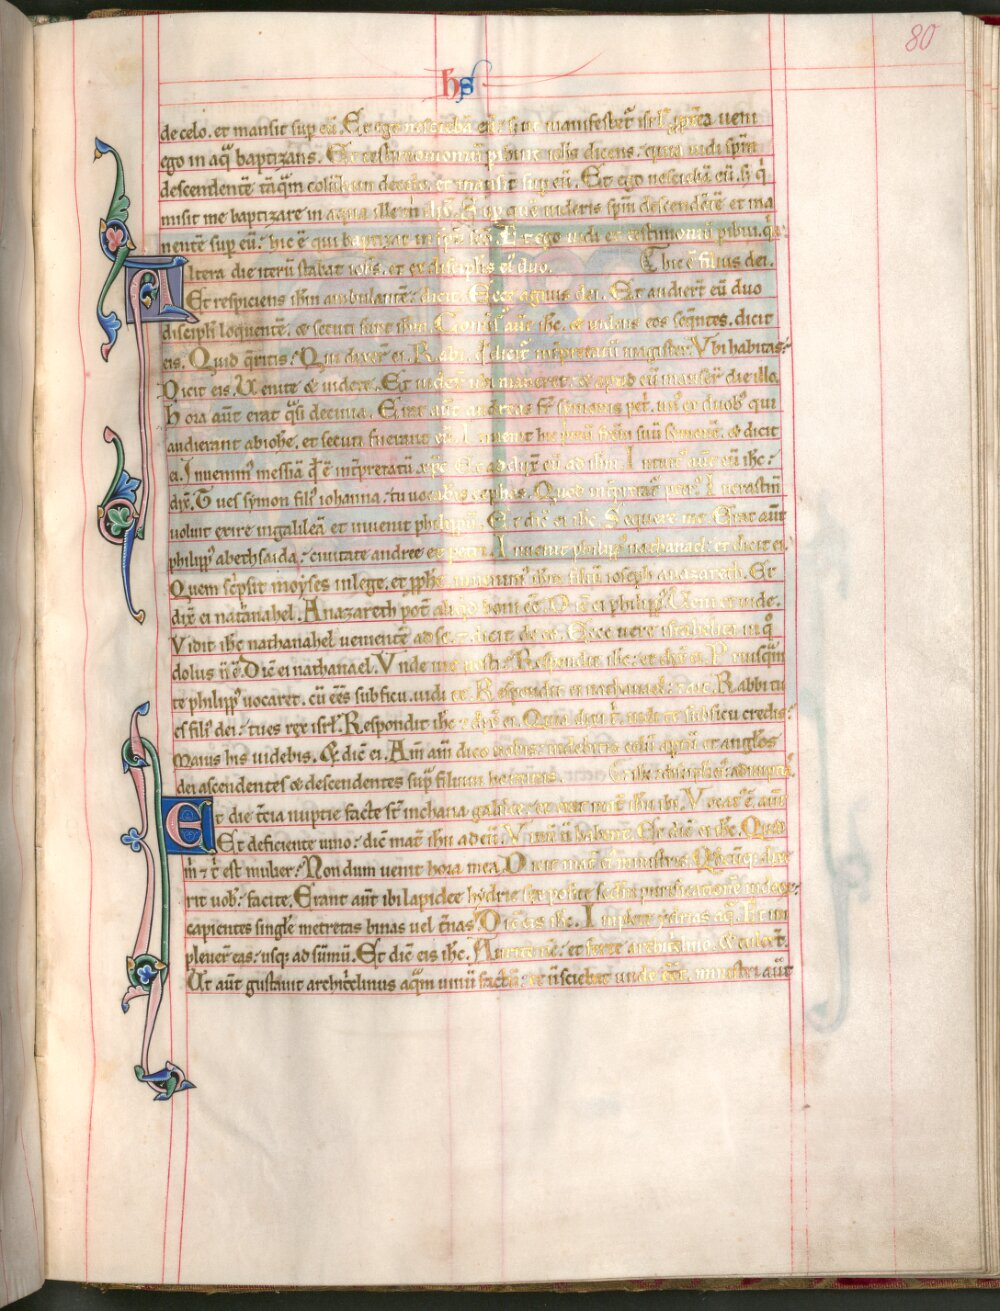 80
hs
de celo. et mansit sup eū. Et ego nesciebā eū: s; ut manifestet' isrl' ꝓpt'ea ueni
ego in aq̄ baptizans. Et testimonium phibuit ioh̄s dicens. quia uidi sp̄m
descendentē tāq̄m columbam de celo. et mansit sup eū. Et ego nesciebā eū. s; q'
misit me baptizare in aqua ille m̄ dix̄. Sup quē uideris sp̄m descendētē et ma
nentē sup eū: hic ē qui baptizat in sp̄u sc̄o. Et ego uidi et testimoniū phibui. q̄a
Altera die iterū stabat ioh̄s. et ex discipl'is ei' duo. hic ē filius dei.
Et respiciens ih̄m ambulantē: dicit. Ecce agnus dei. Et audiert̄ eū duo
discipl'i loquentē. & secuti sunt ih̄m. Conu'sus aūt ih̄c. & uidens eos seq̄ntes. dicit
eis. Quid q̄ritis? Qui dixer̄ ei. Rabi. qd̄ dicit' int'pretatū magister. Vbi habitas?
Dicit eis. Uenite & uidete. Et uider̄ ubi maneret. & apud eū manser̄ die illo.
Hora aūt erat q̄si decima. Erat aūt andreas fr̄ symonis pet'. un' ex duob' qui
audierant abioh̄e. et secuti fuerant eū. Inuenit hic p'mū fr̄em suū symonē. & dicit
ei. Inuenim' messiā qd̄ ē int'pretatū xp̄c. Et addux̄ eū ad ih̄m. Intuit' aūt eū ih̄c:
dix̄. Tu es symon fili' iohanna: tu uocab'is cephas. Quod int'pretat' petr'. In crastinū
uoluit exire in galileā et inuenit philippū. Et dic̄ ei ih̄c. Sequere me. Erat aūt
philipp' abethsaida: ciuitate andree et petri. Inuenit philipp' nathanael: et dicit ei.
Quem sc'psit moyses in lege. et ꝓph̄e inuenim' ih̄m filiū ioseph anazareth. Et
dix̄ ei nathanahel. Anazareth pot̄ aliq'd boni eē. Dic̄ ei philipp'. Ueni et uide.
Vidit ih̄c nathanahel uenientē ad se. & dicit de eo. Ecce uere isrl'ita in q°
dolus n̄ ē. Dic̄ ei nathanael. Vnde me nosti? Respondit ih̄c: et dix̄ ei. Priusq̄m
te philipp' uocaret. cū eēs sub ficu. uidi te. Respondit ei nathanael: & ait. Rabbi tu
es fili' dei: tu es rex isrl'. Respondit ih̄c: & dix̄ ei. Quia dixi t'. uidi te sub ficu credis:
maius his uidebis. Et dic̄ ei. Am̄ am̄ dico uobis: uidebitis celū aptū et angl'os
dei ascendentes & descendentes sup̄ filium hominis.
Et die t'cia nuptie facte st̄ in chana galilee: & erat mat' ih̄u ibi. Vocat' ē aūt
Et deficiente uino: dic̄ mat' ih̄u ad eū. Vinū n̄ habent. Et dic̄ ei ih̄c. Quid
m' & t' est mulier? Non dum uenit hora mea. Dicit mat' ei' ministris. Q̄dcūq; dixe
rit uob': facite. Erant aūt ibi lapidee hydrie sex posite scd̄m purificationē iudeor':
capientes singl'e metretas binas uel t'nas. Dic̄ eis ih̄c. Implete ydrias aq̄. Et im
pleuer̄ eas: usq; ad sūmū. Et dic̄ eis ih̄c. Haurite nc̄: et ferte archit'clino. & tulert̄.
Ut aūt gustauit archit'clinus aq̄m uinū factā: & n̄ sciebat unde eēt. ministri aūt